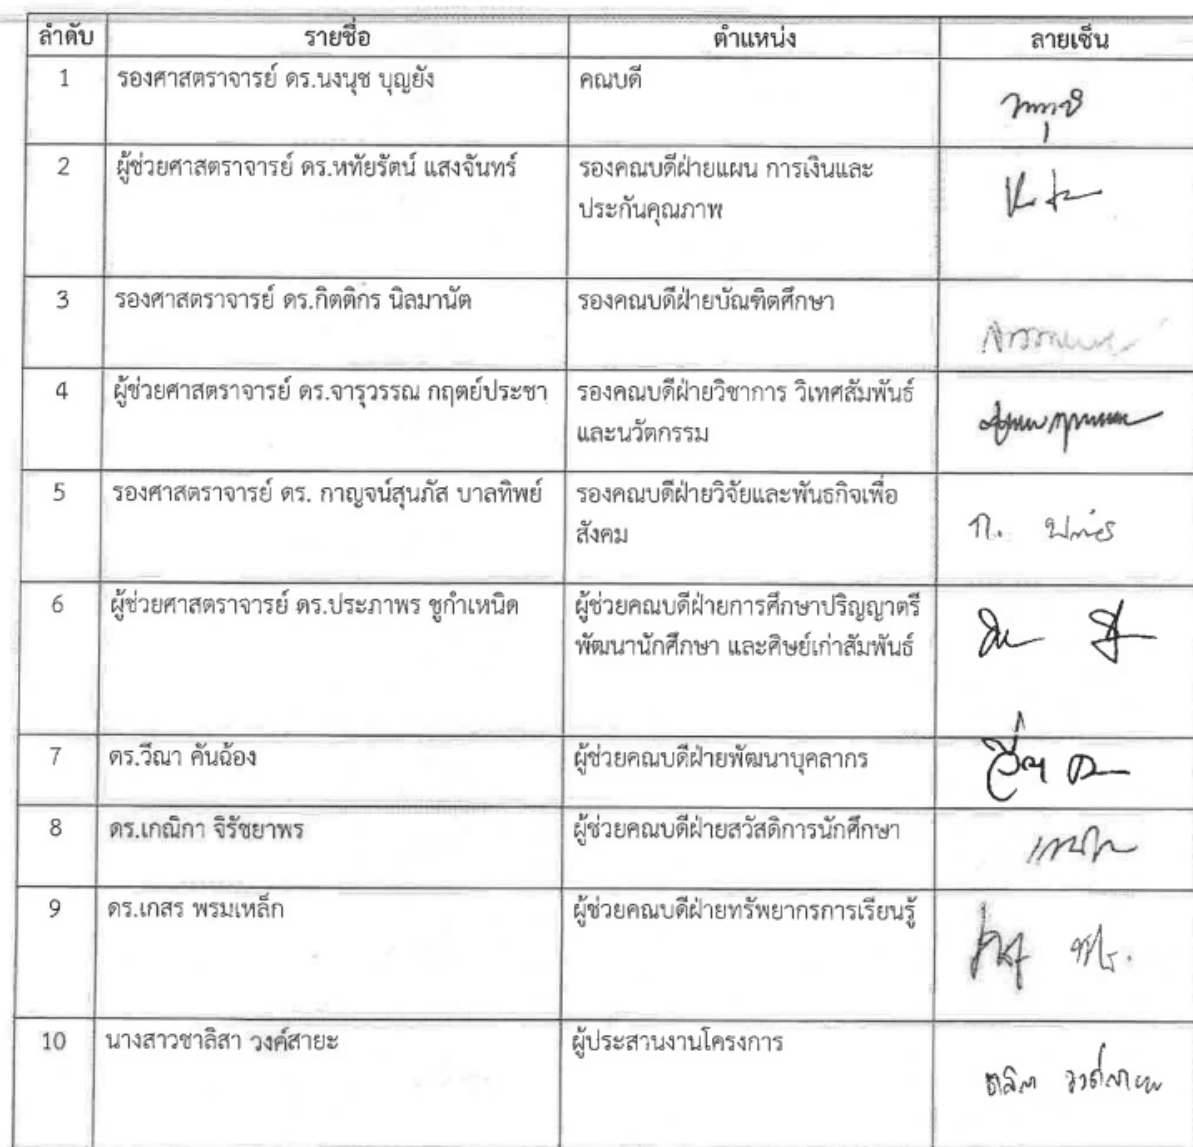 ลำดับ รายชื่อ ตำแหน่ง ลายเซ็น
1 รองศาสตราจารย์ ดร.นงนุช บุญยัง คณบดี
2 ผู้ช่วยศาสตราจารย์ ดร.หทัยรัตน์ แสงจันทร์ รองคณบดีฝ่ายแผน การเงินและ
ประกันคุณภาพ
3 รองศาสตราจารย์ ดร.กิตติกร นิลมานัต รองคณบดีฝ่ายบัณฑิตศึกษา
4 ผู้ช่วยศาสตราจารย์ ดร.จารุวรรณ กฤตย์ประชา รองคณบดีฝ่ายวิชาการ วิเทศสัมพันธ์
และนวัตกรรม
5 รองศาสตราจารย์ ดร. กาญจน์สุนภัส บาลทิพย์ รองคณบดีฝ่ายวิจัยและพันธกิจเพื่อ
สังคม
6 ผู้ช่วยศาสตราจารย์ ดร.ประภาพร ชูกำเหนิด ผู้ช่วยคณบดีฝ่ายการศึกษาปริญญาตรี
พัฒนานักศึกษา และศิษย์เก่าสัมพันธ์
7 ดร.วีณา คันฉ้อง ผู้ช่วยคณบดีฝ่ายพัฒนาบุคลากร
8 ดร.เกณิกา จิรัชยาพร ผู้ช่วยคณบดีฝ่ายสวัสดิการนักศึกษา
9 ดร.เกสร พรมเหล็ก ผู้ช่วยคณบดีฝ่ายทรัพยากรการเรียนรู้
10 นางสาวชาลิสา วงค์สายะ ผู้ประสานงานโครงการ